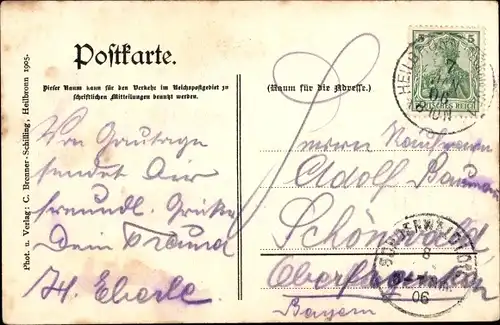 Postkarte.
Dieser Raum kann für den Verkehr im Reichspostgebiet zu
schriftlichen Mitteilungen benutzt werden.
(Raum für die Adresse.)
Phot. u. Verlag: C. Bronner-Schilling, Heilbronn 1905.
5 5
DEUTSCHES REICH
HEILBRONN
sendet Dir
freundl. Grüße
Dein Freund
H. Eberle
Herrn
Adolf Baumann
Schönwald
Oberfranken
Bayern
8
06